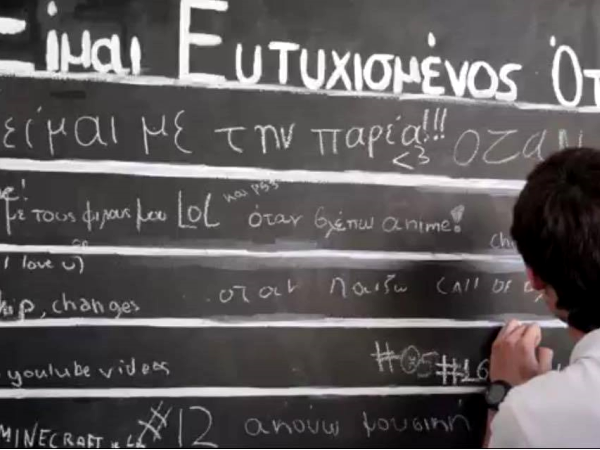 Είμαι Ευτυχισμένος Ότ
είμαι με την παρέα!!! <3 οταν
με τους φιλους μου LOL και ps3 όταν βλέπω anime!
I love u)
changes οταν παιζω CALL OF
youtube videos #05 #16
MINECRAFT #12 ακούω μουσική